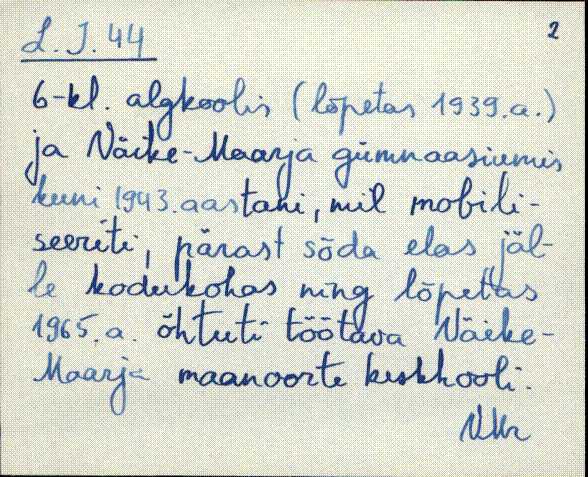 L. J. 44
2
6-kl. algkoolis (lõpetas 1939.a.)
ja Väike-Maarja gümnaasiumis
kuni 1943.aastani, mil mobili-
seeriti, pärast sõda elas jäl-
le kodukohas ning lõpetas
1965.a. õhtuti töötava Väike-
Maarja maanoorte keskkooli.